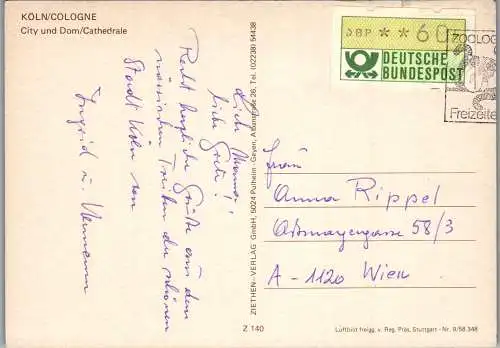 KÖLN/COLOGNE
City und Dom/Cathedrale
Liebe Mama!
liebe Grete!
Recht herzliche Grüße aus dem
närrischen Treiben der schönen
Stadt Köln von
Ingrid u. Hermann
ZIETHEN-VERLAG GmbH, 5024 Pulheim - Geyen, Tel. (02238) 54438
DBP * * 60
DEUTSCHE
BUNDESPOST
ZOOLOG
Freizeite
Frau
Anna Rippel
58/3
A-1120 Wien
Z 140
Luftbild freigg. v. Reg. Präs. Stuttgart - Nr. 9/58 348